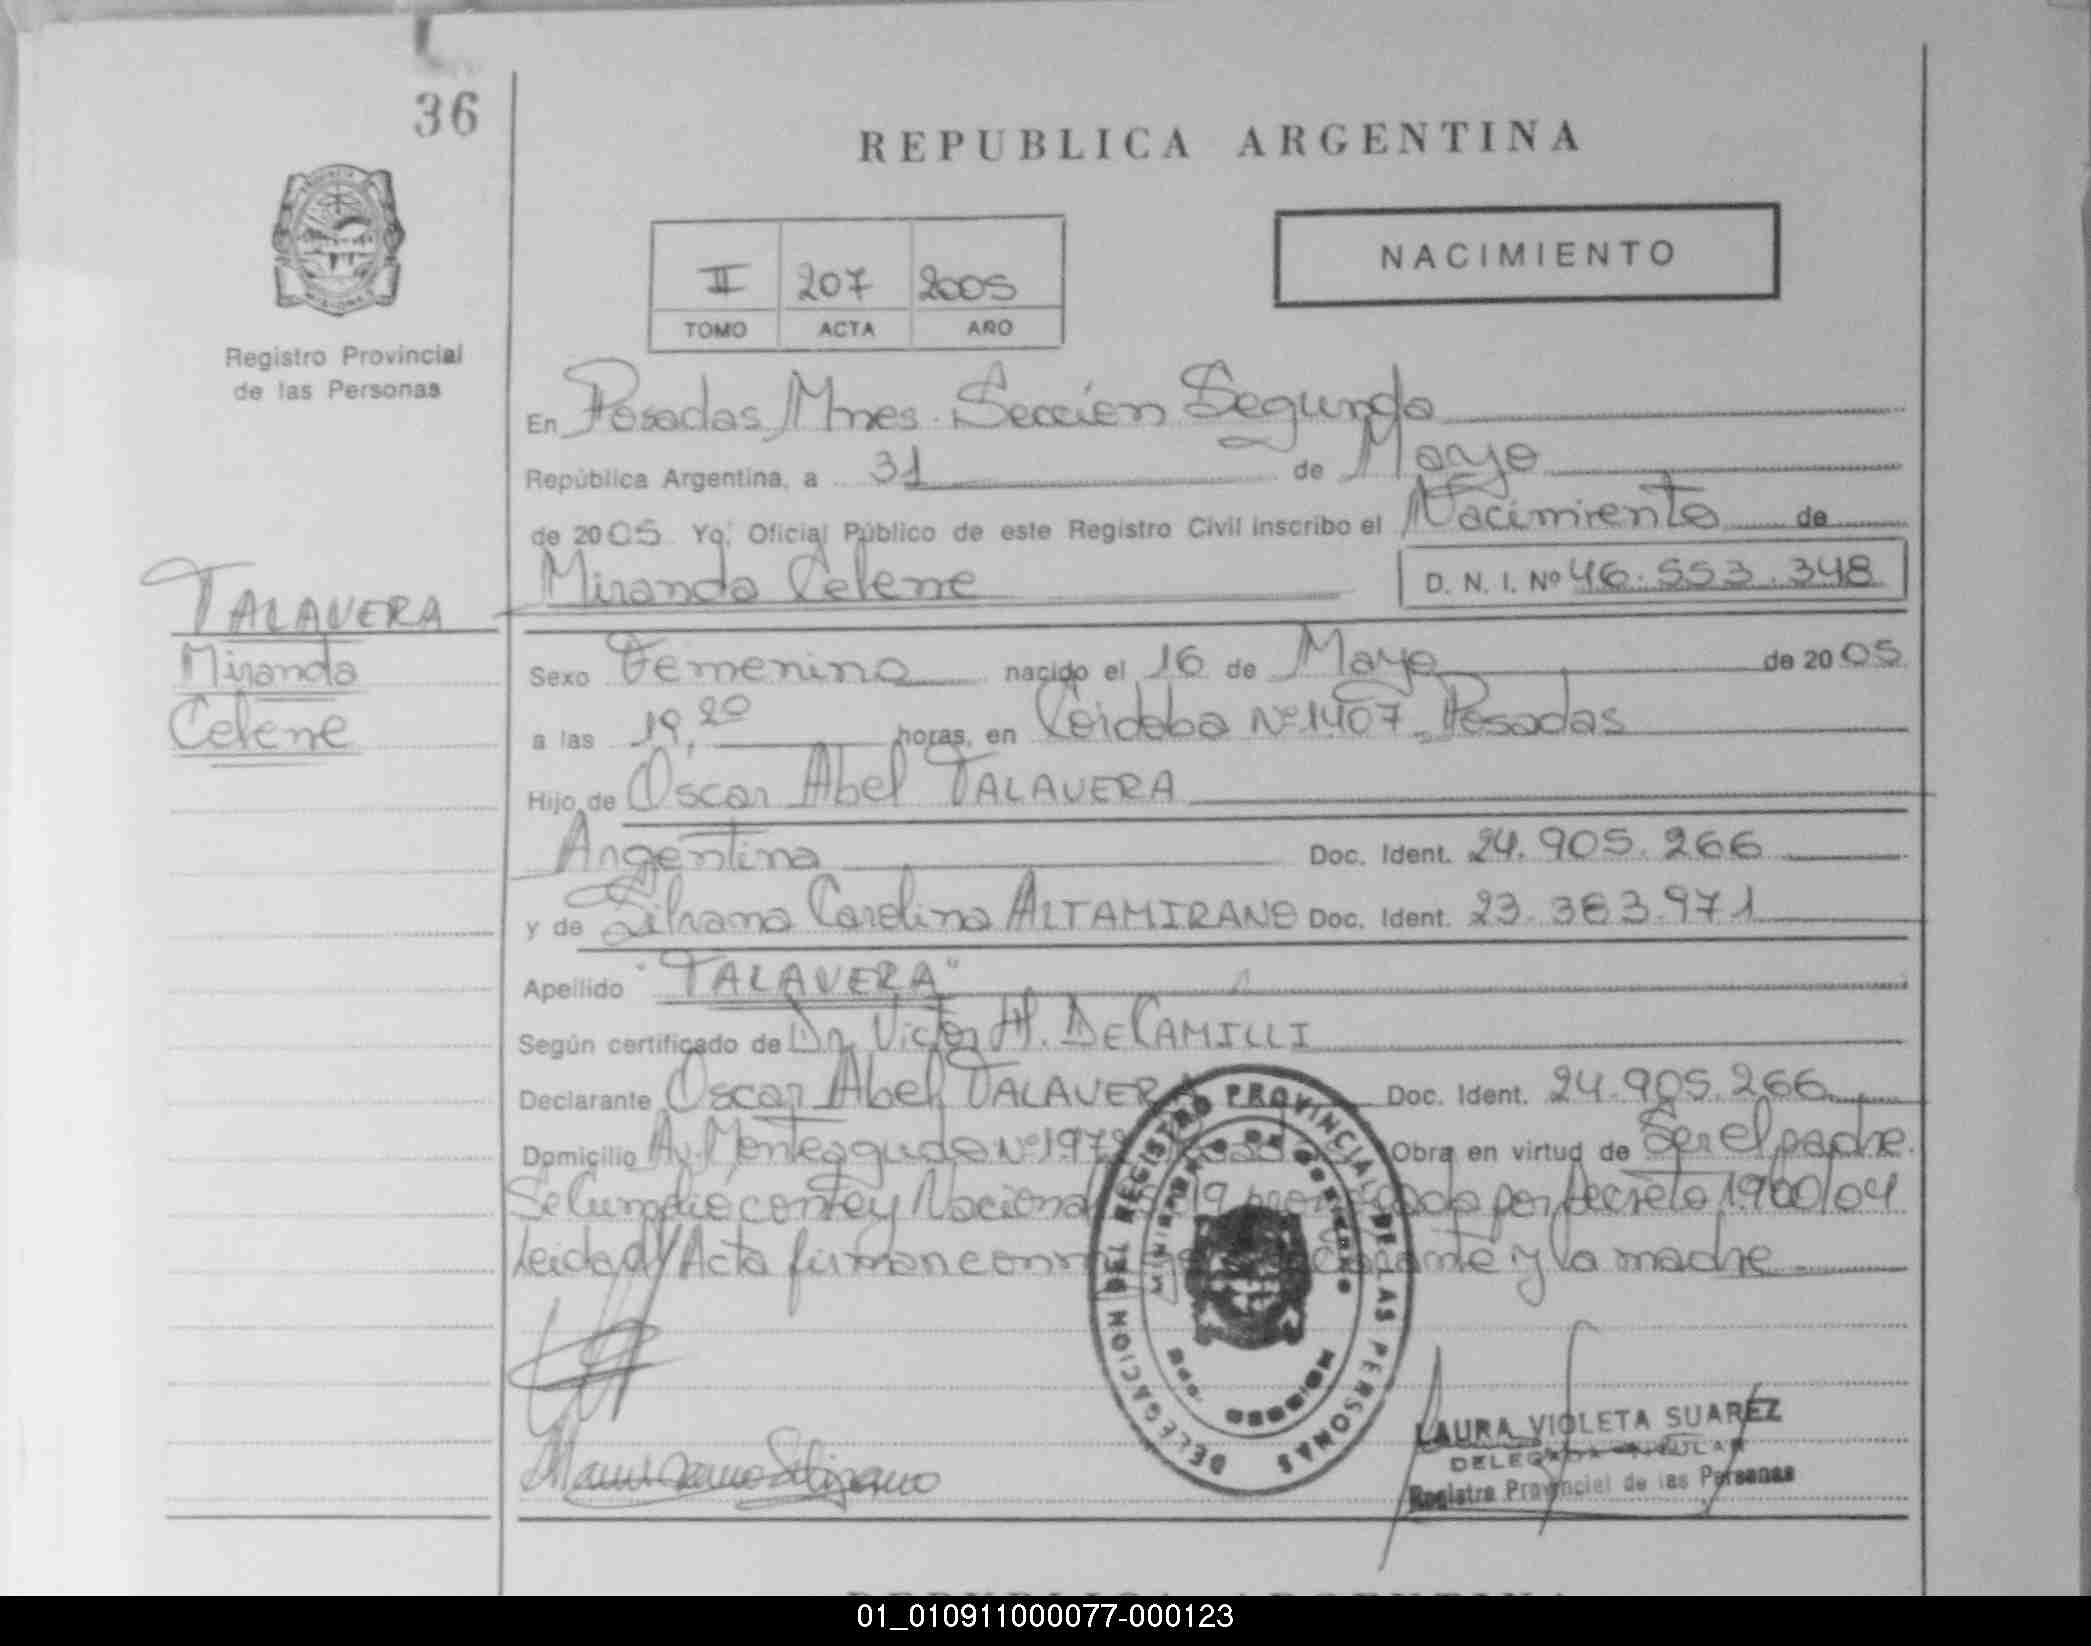 36
REPUBLICA ARGENTINA
NACIMIENTO
II 207 2005
TOMO ACTA AÑO
Registro Provincial
de las Personas
En Posadas, Mnes. Sección Segunda
República Argentina, a 31 de Mayo
de 2005 Yo, Oficial Público de este Registro Civil inscribo el Nacimiento de
Miranda Celene D. N. I. Nº 46.553.348
TALAVERA
Miranda
Celene
Sexo Femenino nacido el 16 de Mayo de 2005
a las 19,20 horas, en Córdoba Nº 1407, Posadas
Hijo de Oscar Abel TALAVERA
Argentina Doc. Ident. 24.905.266
y de Silvana Carolina ALTAMIRANO Doc. Ident. 23.383.971
Apellido "TALAVERA"
Según certificado de Dr. Victor H. DE CAMILLI
Declarante Oscar Abel TALAVERA Doc. Ident. 24.905.266
Domicilio Av. Monteagudo Nº 197 Obra en virtud de Ser el padre.
Se Cumplió con Ley Nacional por Decreto 1960/04
Leida el Acta firman y la madre
DELEGACION DEL REGISTRO PROVINCIAL DE LAS PERSONAS
MINISTERIO DE GOBIERNO
LAURA VIOLETA SUAREZ
DELEGADA TITULAR
Registro Provincial de las Personas
REPUBLICA ARGENTINA
01_010911000077-000123